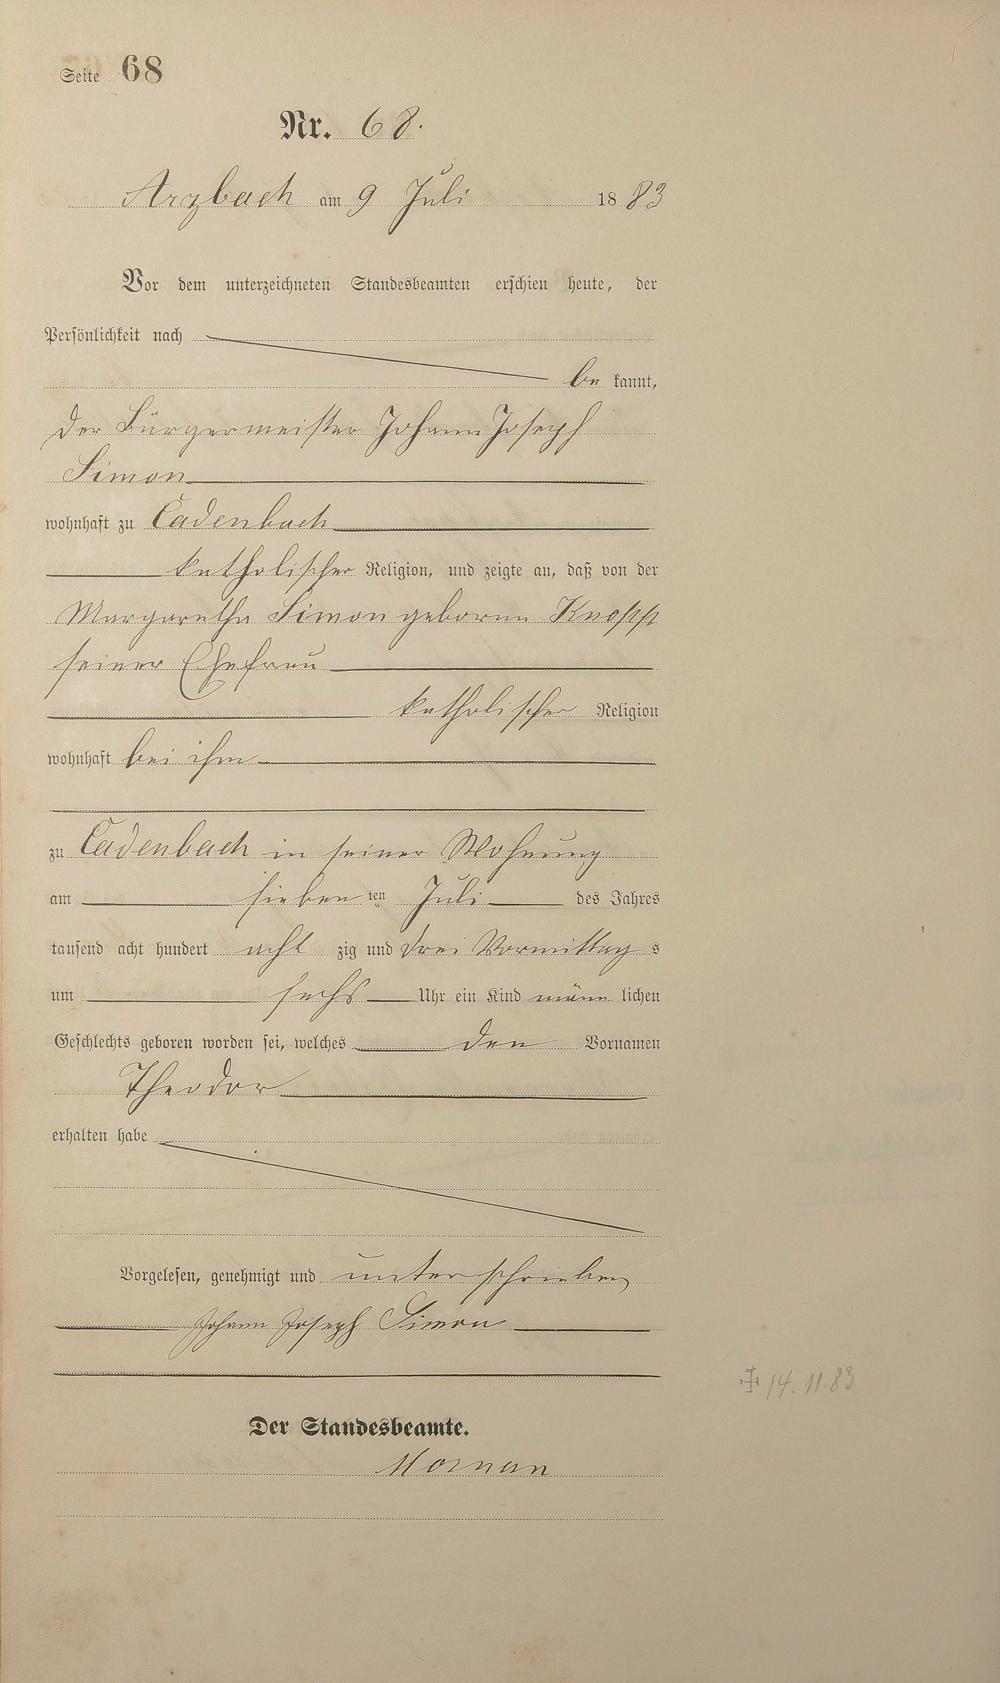 Seite 68
Nr. 68.
Arzbach am 9 Juli 1883
Vor dem unterzeichneten Standesbeamten erschien heute, der
Persönlichkeit nach
be kannt,
der Bürgermeister Johann Joseph
Simon
wohnhaft zu Cadenbach
katholischer Religion, und zeigte an, daß von der
Margaretha Simon geborne Knopp
seiner Ehefrau
katholischer Religion
wohnhaft bei ihm
zu Cadenbach in seiner Wohnung
am sieben ten Juli des Jahres
tausend acht hundert acht zig und drei Vormittag s
um sechs Uhr ein Kind männ lichen
Geschlechts geboren worden sei, welches den Vornamen
Theodor
erhalten habe
Vorgelesen, genehmigt und unterschrieben
Johann Joseph Simon
14.11.83
Der Standesbeamte.